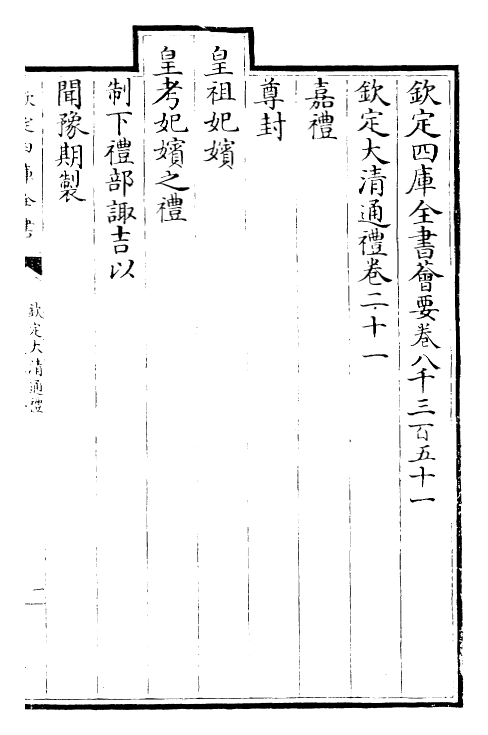 欽定四庫全書薈要卷八千三百五十一
欽定大清通禮卷二十一
嘉禮
尊封
皇祖妃嬪
皇考妃嬪之禮
制下禮部諏吉以
聞豫期製
欽定四庫全書
欽定大清通禮
二